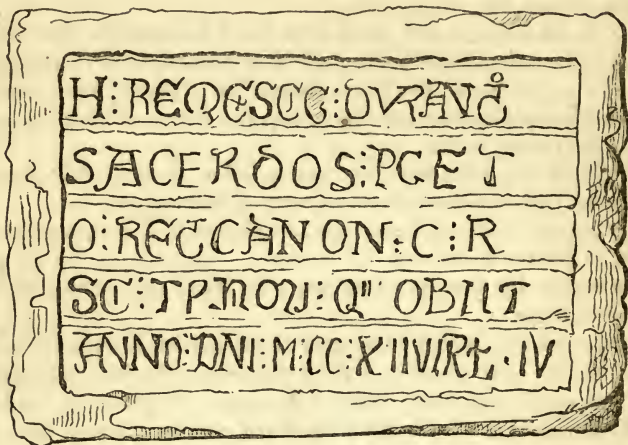 H⁝REQESCE⁝DVRAND͛
SACERDOS⁝PCET
O⁝RECCANON⁝C⁝R
SC⁝TPMOV⁝Q" OBIIT
ANNO⁝DNI⁝M⁝CC⁝XIIVIRL·IV